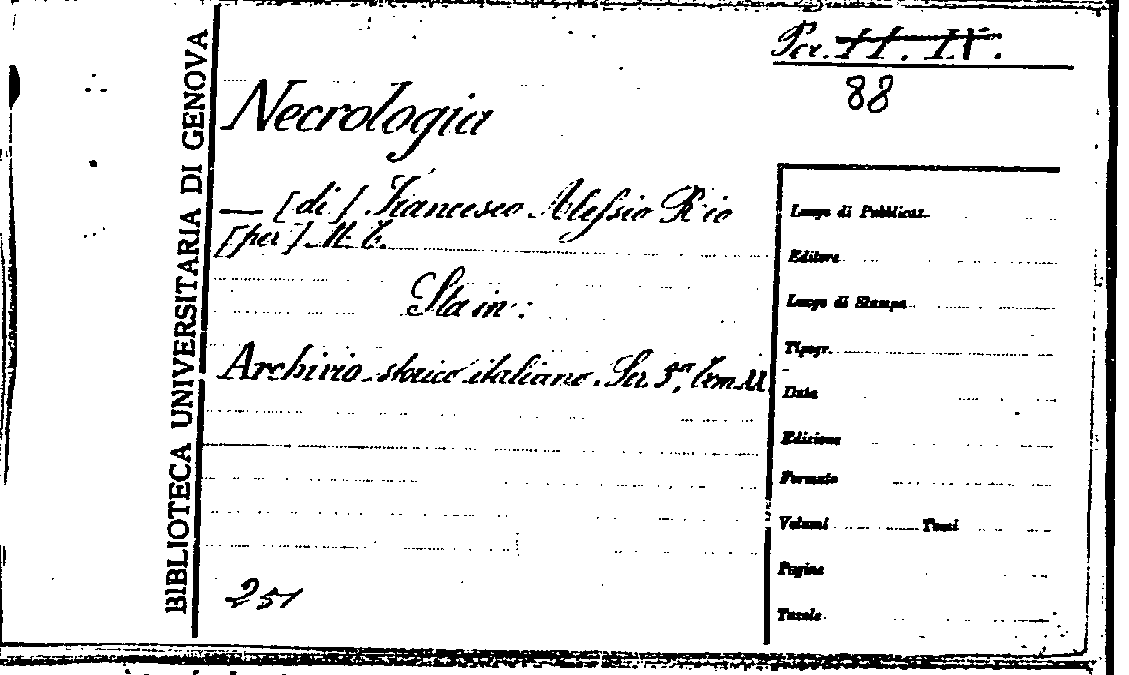 BIBLIOTECA UNIVERSITARIA DI GENOVA
Per. II. IV.
88
Necrologia
— [di] Francesco Alessio Rio
[per] M. T.
Sta in:
Archivio storico italiano. Ser. 3ª, Tom.
251
Luogo di Pubblicaz.
Editore
Luogo di Stampa
Tipogr.
Data
Edizione
Formato
Volumi Tomi
Pagine
Tavole